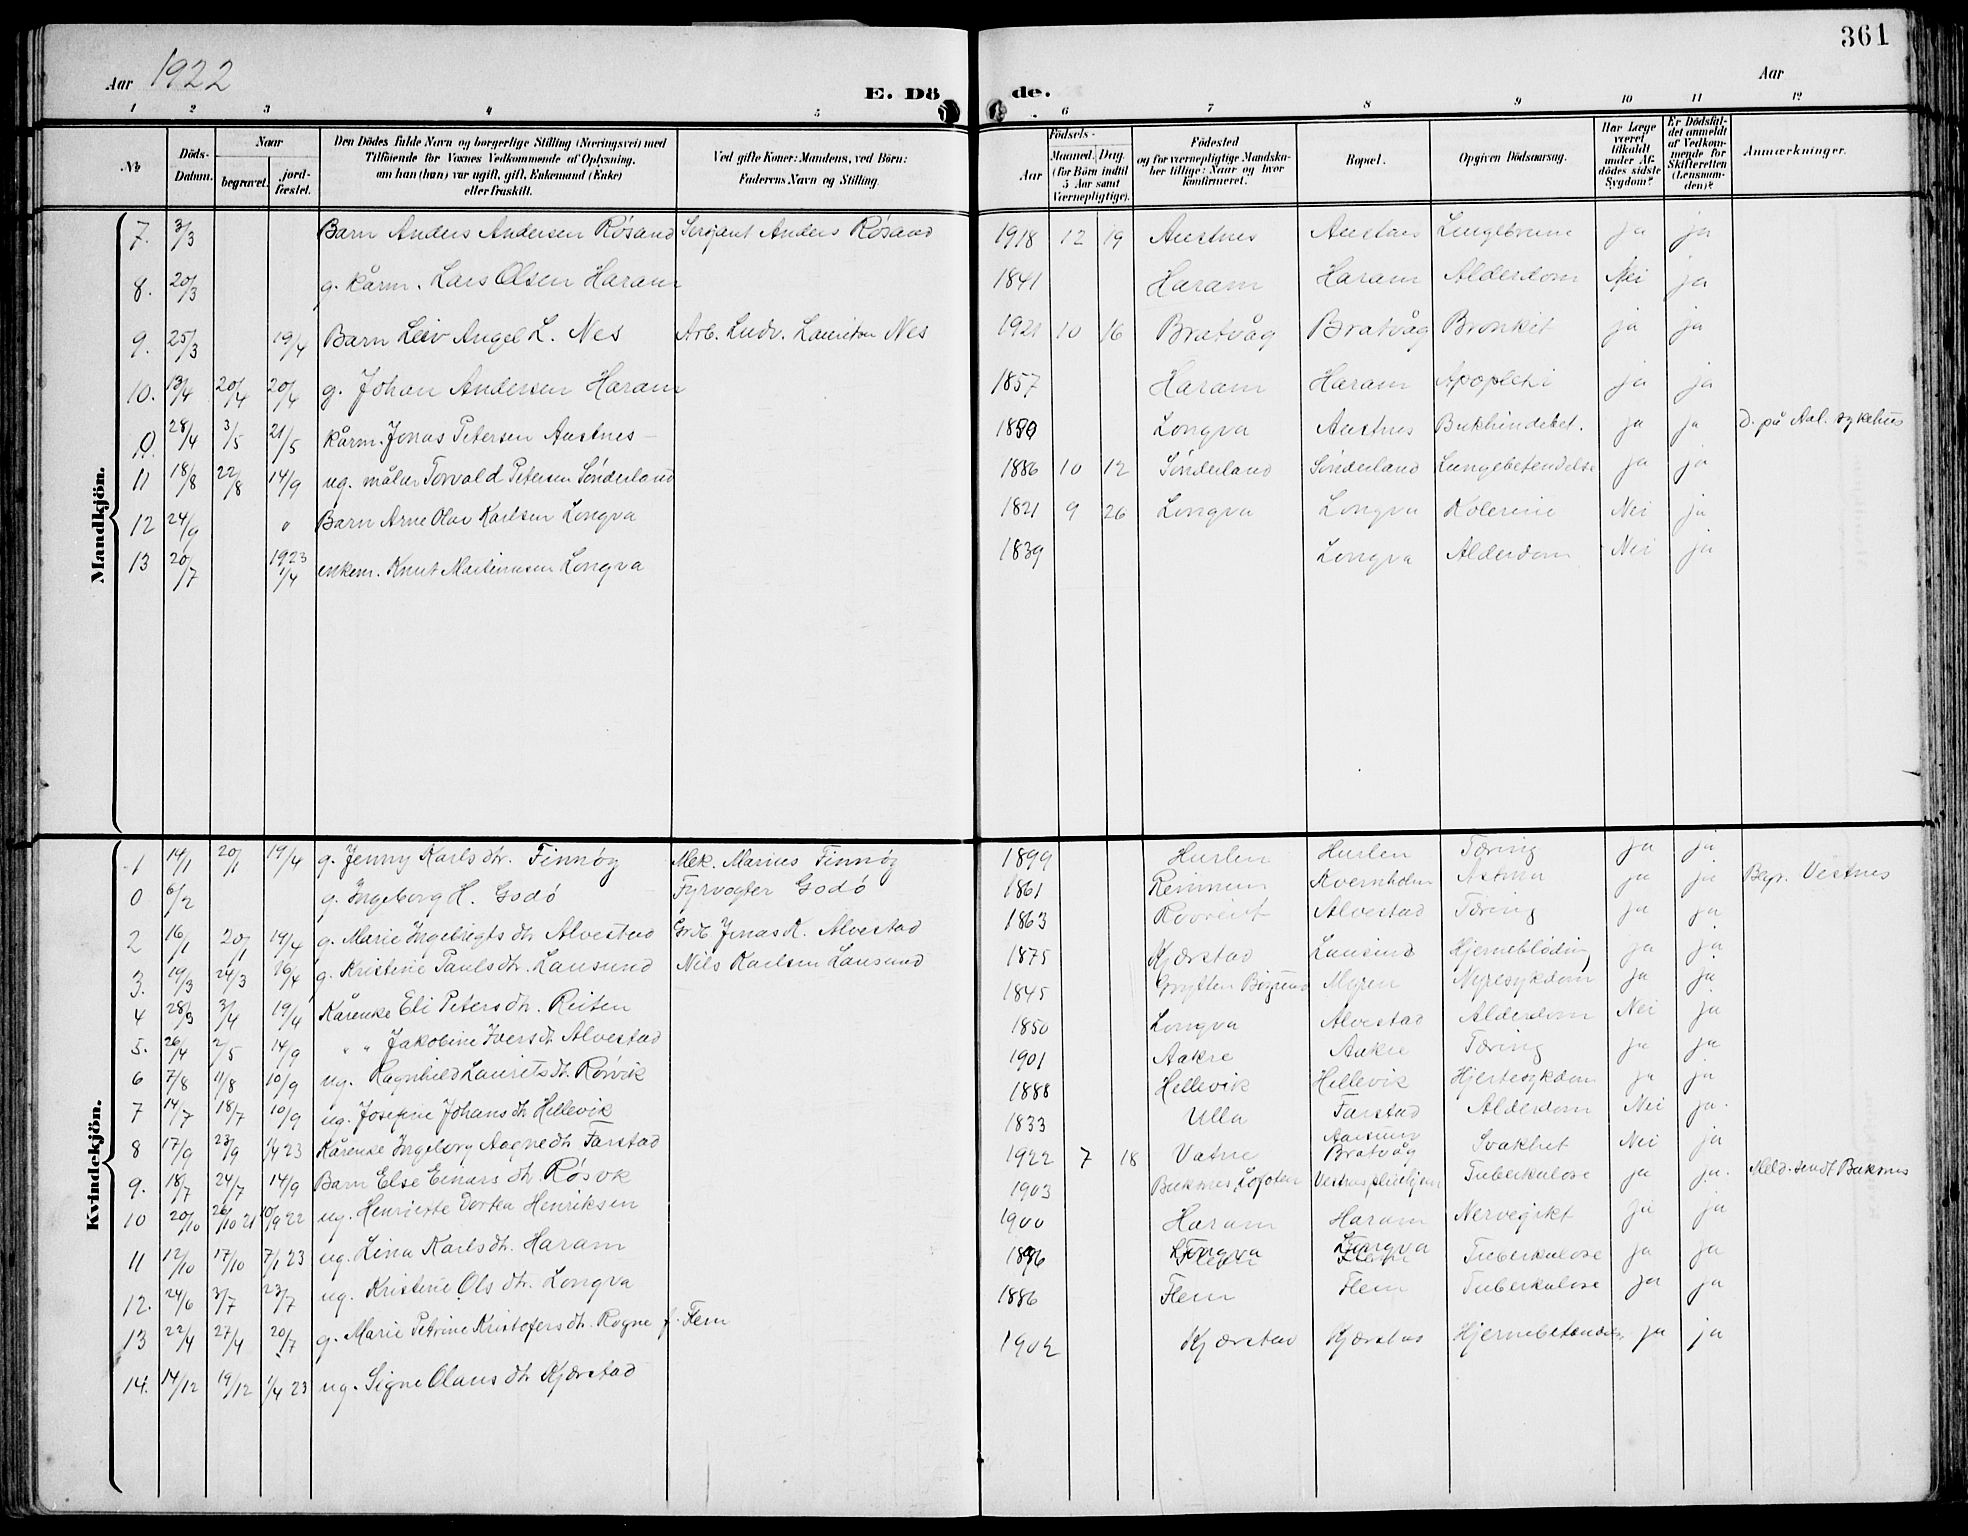 361
Aar 1922
E. Dö de.
Aar
1 2 3 4 5 6 7 8 9 10 11 12
No.
Döds-Datum.
Naar
begravet.
jord-fæstet.
Den Dödes fulde Navn og borgerlige Stilling (Næringsvei) med
Tilföiende for Voxnes Vedkommende af Oplysning,
om han (hun) var ugift, gift, Enkemand (Enke)
eller fraskilt.
Ved gifte Koner: Mandens, ved Börn:
Faderens Navn og Stilling.
Födsels-
Aar
Maaned. Dag.
(for Börn indtil
5 Aar samt
Værnepligtige).
Födested
og for værnepligtige Mandska-
ber tillige: Naar og hvor
konfirmeret.
Bopæl.
Opgiven Dödsaarsag.
Har Læge
været
tilkaldt
under Af-
dödes sidste
Sygdom?
Er Dödsfal-
det anmeldt
af Vedkom-
mende for
Skifteretten
(Lensman-
den)?
Anmærkninger.
Mandkjön.
7. 3/3 Barn Anders Andersen Røsand Serjant Anders Røsand 1918 12 19 Austnes Austnes ja ja
8. 20/3 g. kårm. Lars Olsen Haram 1841 Haram Haram Alderdom Nei ja
9. 25/3 19/4 Barn Leiv Angel L. Nes Arb. Ludv. Lauritsen Nes 1921 10 16 Bratvåg Bratvåg Bronkit ja ja
10. 13/4 20/4 20/4 g. Johan Andersen Haram 1857 Haram Haram Apopleksi ja ja
0. 28/4 3/5 21/5 kårm. Jonas Petersen Austnes – Longva Austnes Bukhindebet. ja ja D. på Aal. sykehus
11 18/8 22/8 14/9 ug. måler Torvald Petersen Sønderland 1886 10 12 Sønderland Sønderland Lungebetendelse ja ja
12 24/9 " Barn Arne Olav Karlsen Longva 1821 9 26 Longva Longva Kolerine Nei ja
13 20/7 1923 1/4 enkem. Knut Martinusen Longva 1839 Longva Alderdom Nei ja
Kvindekjön.
1 14/1 20/1 19/4 g. Jenny Karlsdtr. Finnøy Mek. Marius Finnøy 1899 Huslen Huslen Tæring ja ja
0 6/2 g. Ingeborg H. Godø Fyrvogter Godø 1861 Remmem Kvernholm Astma ja ja Begr. Vestnes
2 16/1 20/1 19/4 g. Marie Ingebrigts dtr Alvestad Grdb. Jonas K. Alvestad 1863 Alvestad Tæring ja ja
3. 19/3 24/3 16/4 g. Kristine Paulsdtr. Lausund Nils Karlsen Lausund 1875 Kjærstad Lausund Hjerneblødning ja ja
4 28/3 3/4 19/4 Kårenke Eli Petersdtr. Reiten 1845 Grytten Myren Nyresykdom ja ja
5. 26/4 2/5 14/9 " " Jakobine Iversdtr Alvestad 1850 Longva Alvestad Alderdom Nei ja
6 7/8 11/8 10/9 ug. Ragnhild Lauritsdtr. Rørvik 1901 Aakre Aakre Tæring ja ja
7 14/7 18/7 10/9 ug. Josefine Johansdtr Hellevik 1888 Hellevik Hellevik Hjertesykdom ja ja
8 17/9 23/9 1/4 23 Kårenke Ingeborg Aagnedtr Farstad 1833 Ulla Farstad Alderdom Nei ja.
9. 18/7 24/7 14/9 Barn Else Einarsdtr Røsok 1922 7 18 Vatne Bratvåg Svakhet Nei ja
10 20/10 26/10 21 10/9 22 ug. Henriette Dortea Henriksen 1903 Buksnes, Lofoten Vestnes pleiehjem Tuberkulose ja ja. Meld. sendt Buksnes
11 12/10 17/10 7/1 23 ug. Lina Karlsdtr. Haram 1900 Haram Haram Nervegikt ja ja
12. 24/6 3/7 23/7 ug. Kristine Olsdtr. Longva 1896 Longva Longva Tuberkulose ja ja
13 22/4 27/4 20/7 g. Marie Petrine Kristofersdtr. Rogne f. Flem 1886 Flem Flem Tuberkulose ja ja
14. 14/12 19/12 1/4 23 ug. Signe Olausdtr Kjærstad 1902 Kjærstad Kjærstad Hjernebetendelse ja ja